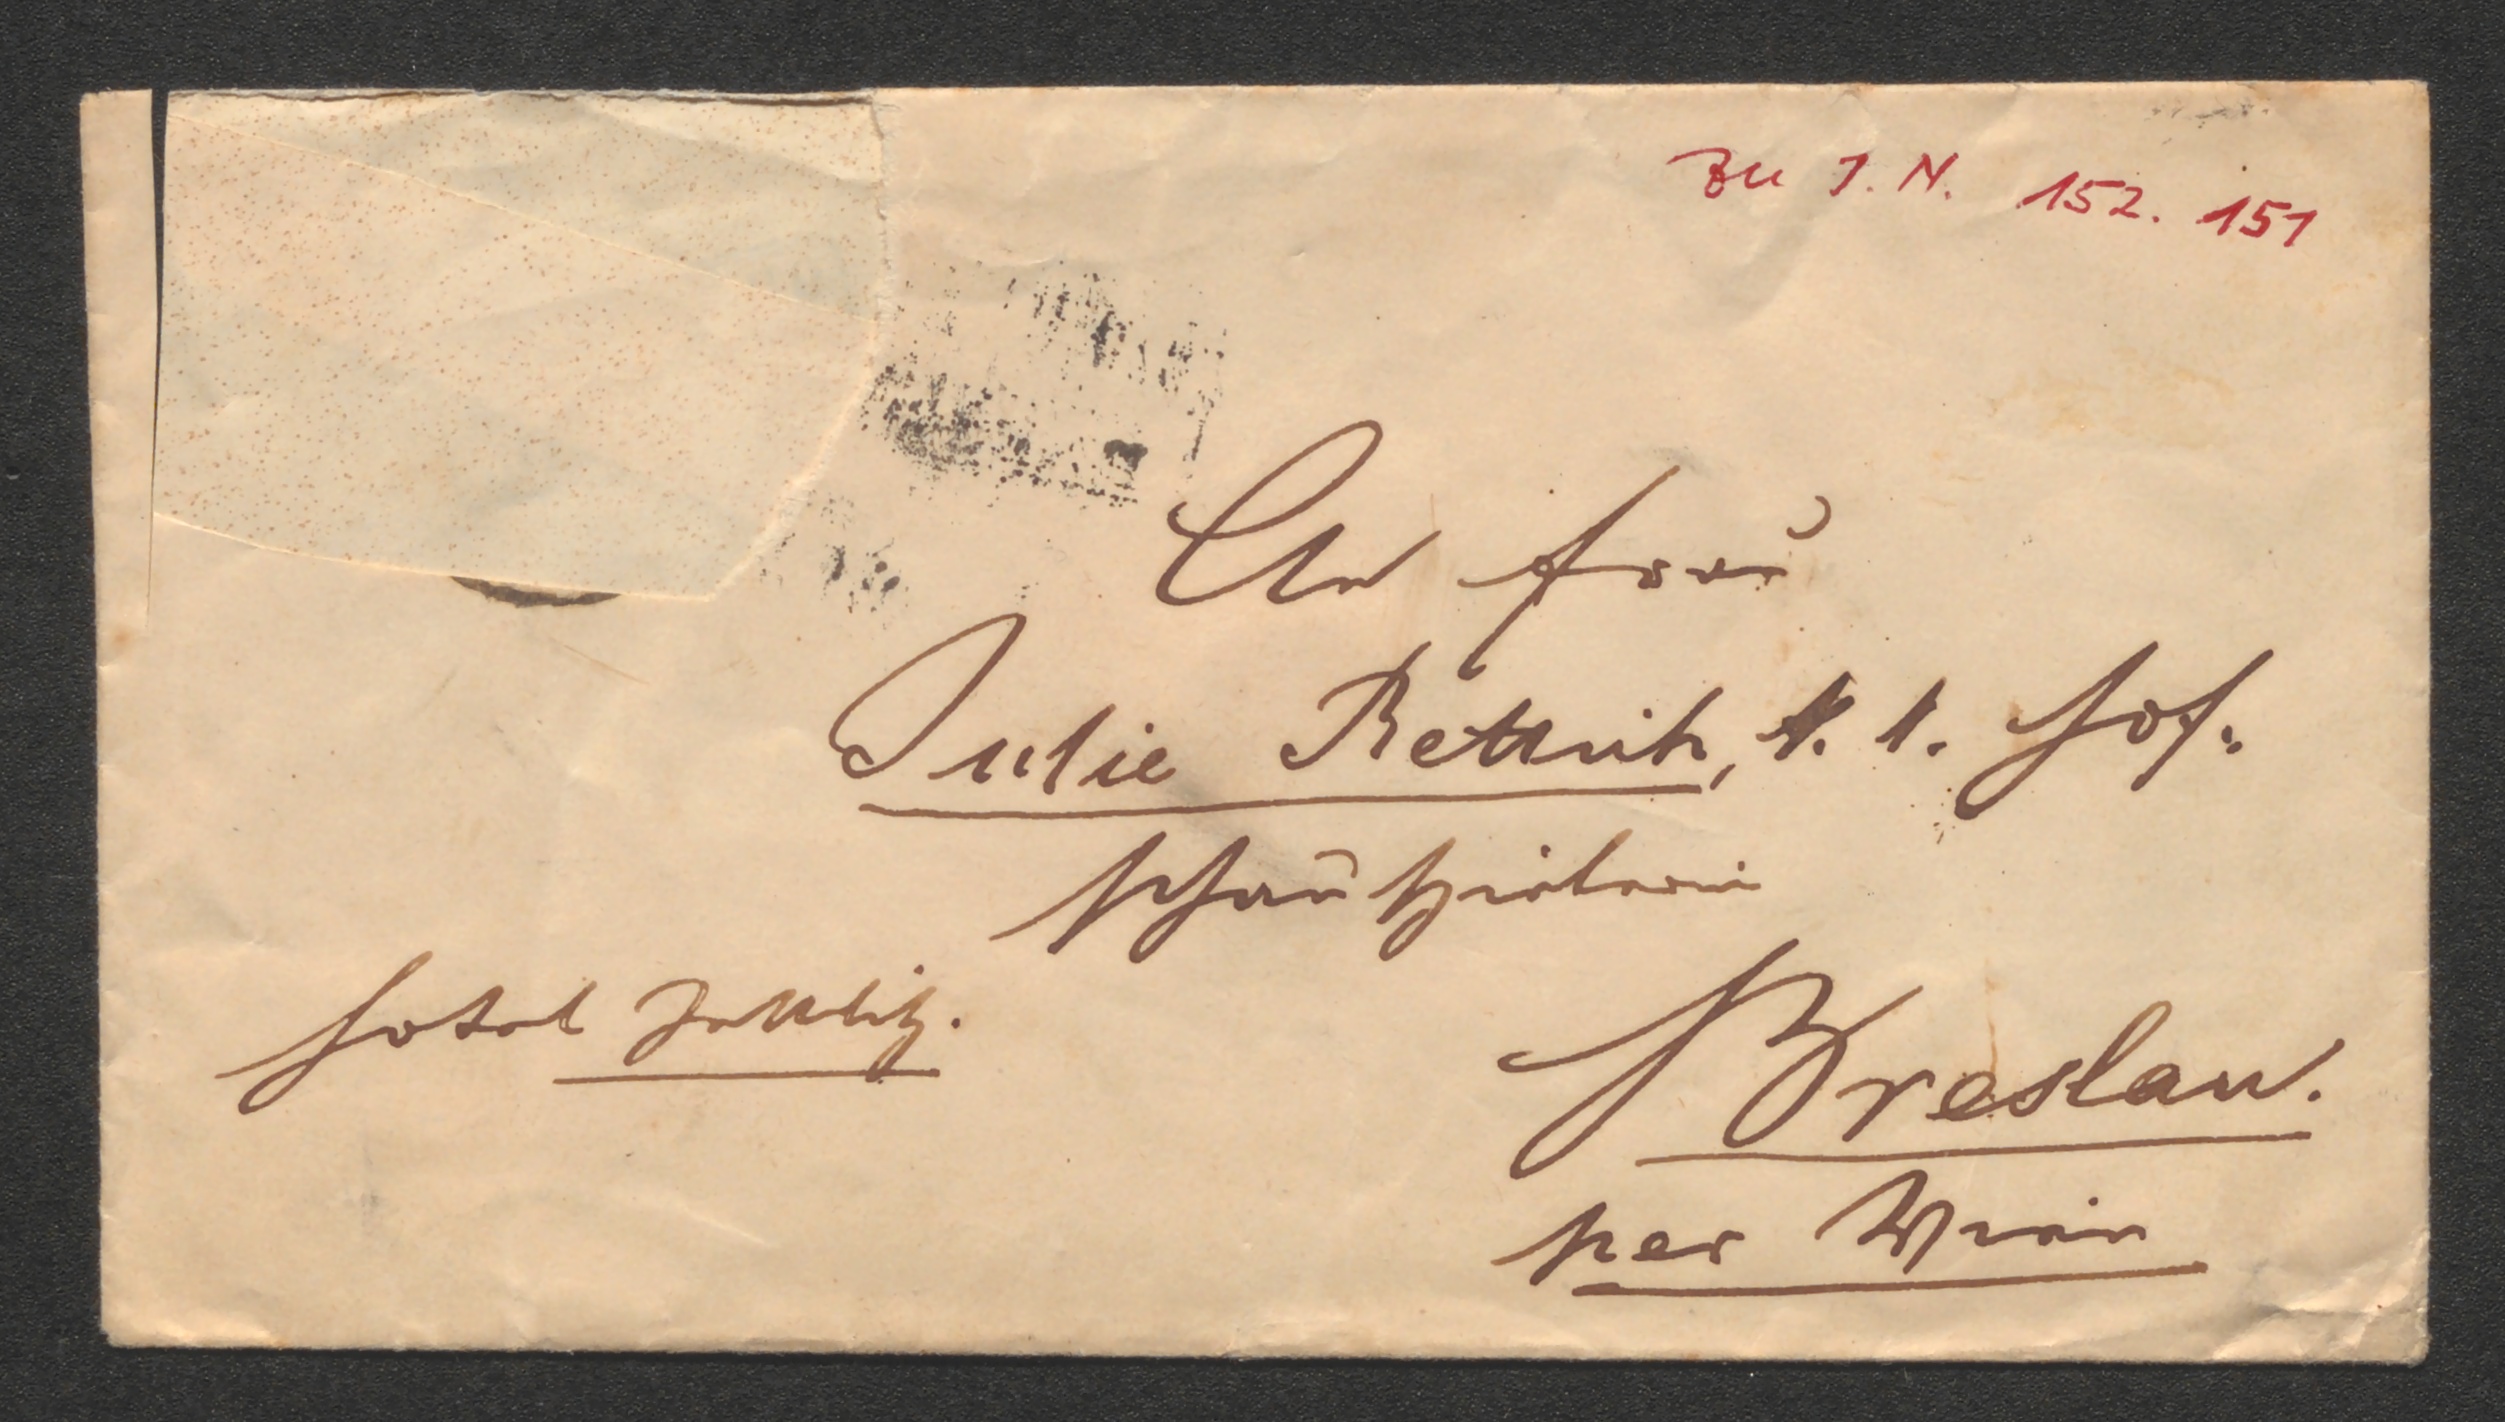 Zu I. N. 152. 151
An Frau
Julie Rettich, k. k. Hof-
schauspielerin
Hotel Zettlitz.
Breslau.
per Wien